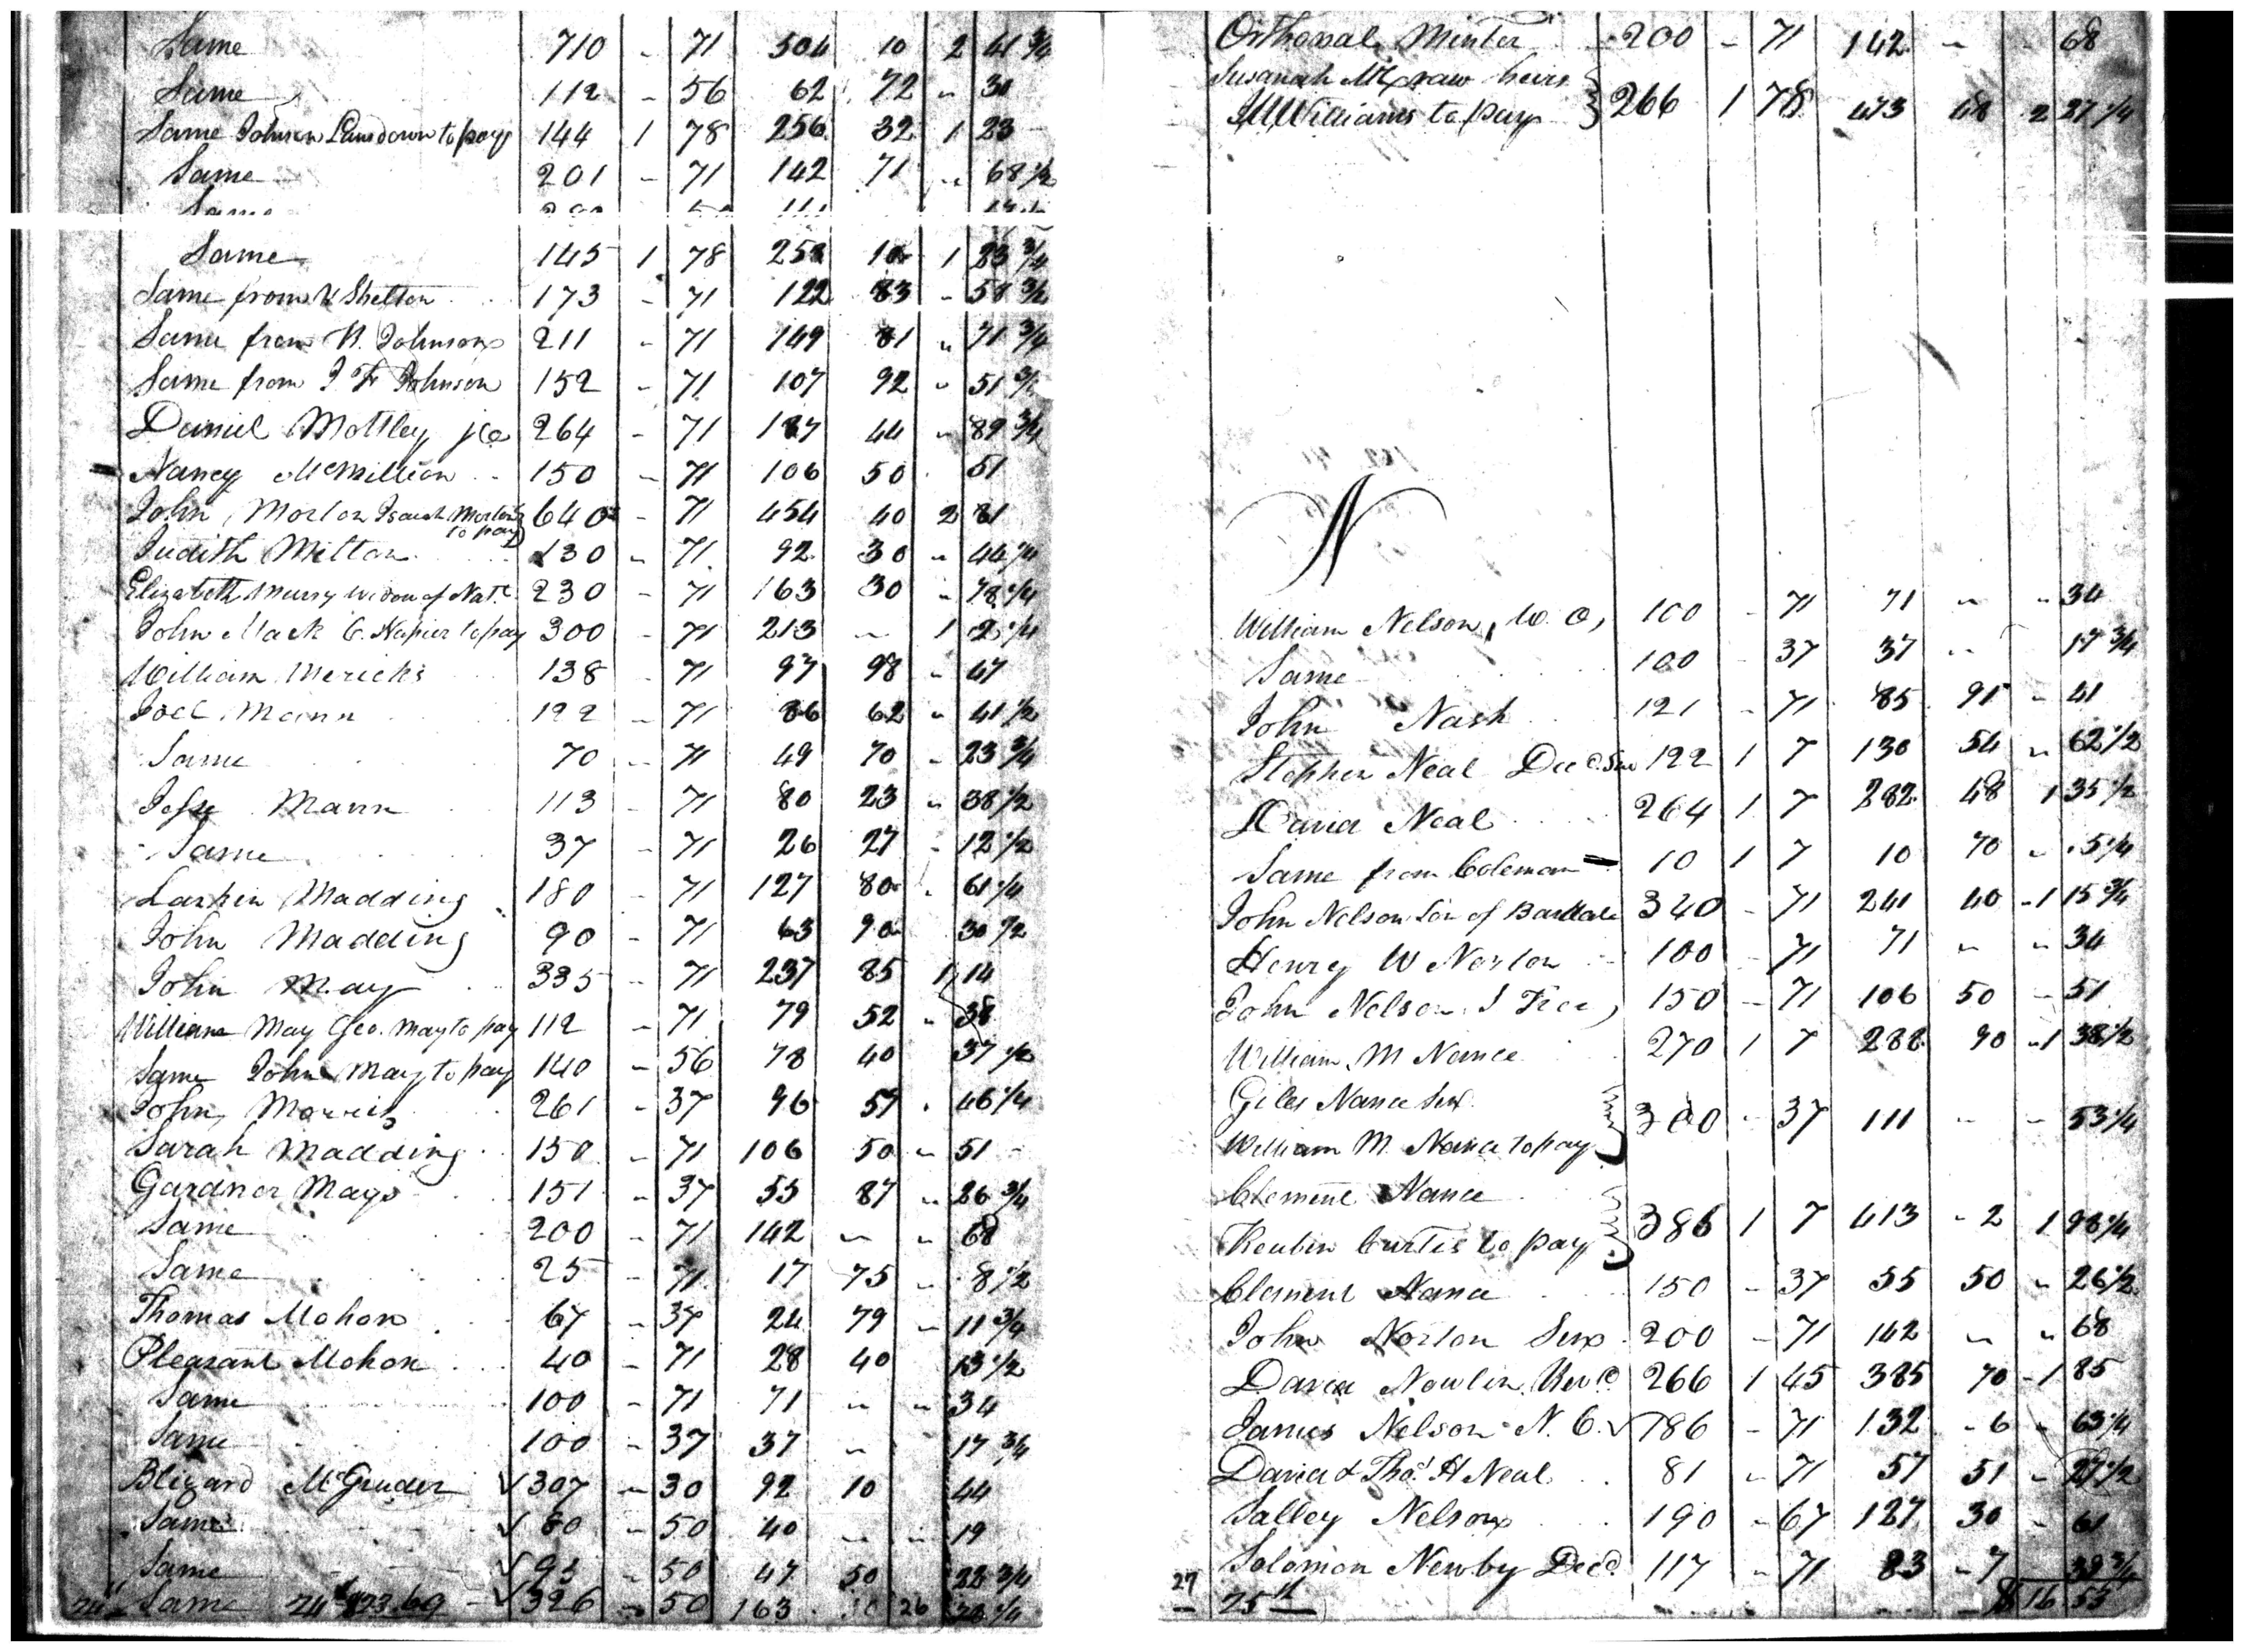 Same 710 - 71 504 10 2 41 3/4
Same 112 - 56 62 72 " 30
Same Johnson Lansdown to pay 144 1 78 256 32 1 23
Same 201 - 71 142 71 " 68 1/2
Same
Same 145 1 78 258 10 1 23 3/4
Same from W Shelton 173 - 71 122 83 - 58 3/4
Same from N. Johnson 211 - 71 149 81 " 71 3/4
Same from J F Johnson 152 - 71 107 92 " 51 3/4
Daniel Mottley 264 - 71 187 44 " 89 3/4
Nancy McMillion 150 - 71 106 50 51
John Morton Isaiah Morton to pay 640 - 71 454 40 2 81
Judith Mitton 130 - 71 92 30 " 44 1/4
Elizabeth Murry Widow of Natl. 230 - 71 163 30 " 78 1/4
John Mack C. Napier to pay 300 - 71 213 - 1 2 1/4
William Mericks 138 - 71 97 98 - 47
Joel Mann 122 - 71 86 62 " 41 1/2
Same 70 - 71 49 70 - 23 3/4
Jesse Mann 113 - 71 80 23 " 38 1/2
Same 37 - 71 26 27 - 12 1/2
Larkin Madding 180 - 71 127 80 " 61 1/4
John Madding 90 - 71 63 90 30 1/2
John May 335 - 71 237 85 1 14
William May Geo. May to pay 112 - 71 79 52 " 38
Same John May to pay 140 - 56 78 40 37 1/2
John Morris 261 - 37 96 57 " 46 1/4
Sarah Madding 150 - 71 106 50 " 51
Gardner Mays 151 - 37 55 87 " 26 3/4
Same 200 - 71 142 " " 68
Same 25 - 71 17 75 - 8 1/2
Thomas Mohon 67 - 37 24 79 - 11 3/4
Pleasant Mohon 40 - 71 28 40 13 1/2
Same 100 - 71 71 " " 34
Same 100 - 37 37 " 17 3/4
Blizard McGruder √ 307 - 30 92 10 44
Same √ 80 - 50 40 - - 19
Same √ 95 - 50 47 50 22 3/4
Same √ 326 - 50 163 26
Orthonal Minter 200 - 71 142 - - 68
Susanah McCraw heirs
W Williams to pay } 266 1 78 473 48 2 27 1/4
N
William Nelson, W. O, 100 - 71 71 " " 34
Same 100 - 37 37 " 17 3/4
John Nash 121 - 71 85 91 - 41
Stephen Neal Decd. 122 1 7 130 54 " 62 1/2
David Neal 264 1 7 282 48 1 35 1/2
Same from Coleman 10 1 7 10 70 " 5 1/4
John Nelson Son of 340 - 71 241 40 - 1 15 3/4
Henry W Norton 100 - 71 71 " " 34
John Nelson 150 - 71 106 50 - 51
William M Nance 270 1 7 288 90 - 1 38 1/2
Giles Nance Senr.
William M. Nance to pay } 300 - 37 111 - - 53 1/4
Clement Nance
Reuben Curtis to pay } 386 1 7 413 - 2 1 98 1/4
Clement Nance 150 - 37 55 50 " 26 1/2
John Norton Senr 200 - 71 142 " " 68
David Nowlin Revd. 266 1 45 385 70 - 1 85
James Nelson N. C. √ 186 - 71 132 - 6 - 63 1/4
David & Thos. H Neal 81 - 71 57 51 - 27 1/2
Salley Nelson 190 - 67 127 30 - 61
Solomon Newby Decd. 117 - 71 83 - 7 39 3/4
27 25 $ 16 53